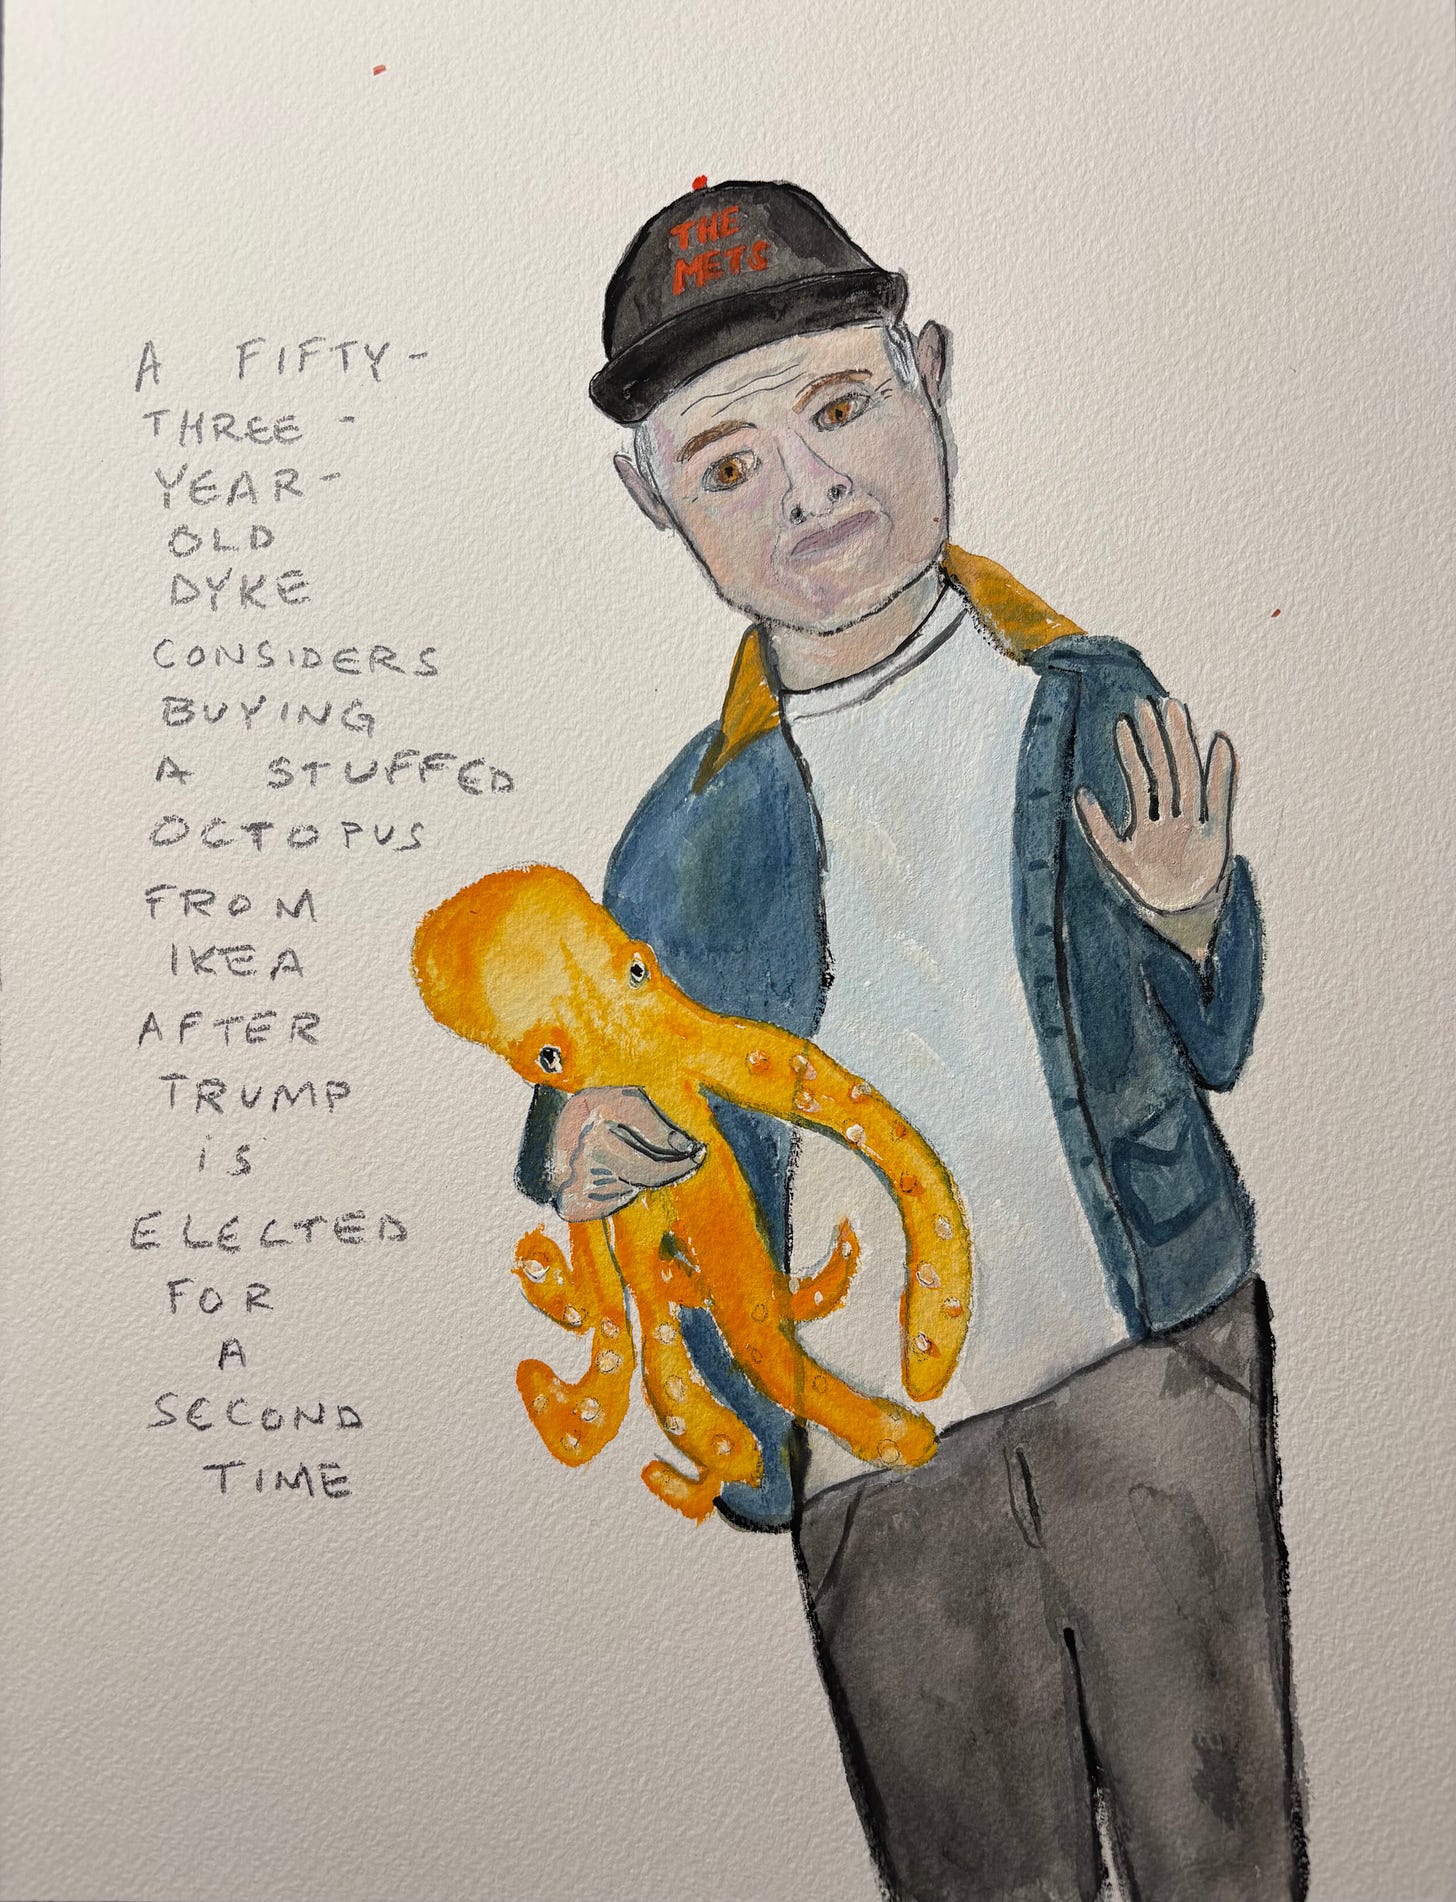 THE
METS
A FIFTY-
THREE-
YEAR-
OLD
DYKE
CONSIDERS
BUYING
A STUFFED
OCTOPUS
FROM
IKEA
AFTER
TRUMP
is
ELECTED
FOR
A
SECOND
TIME